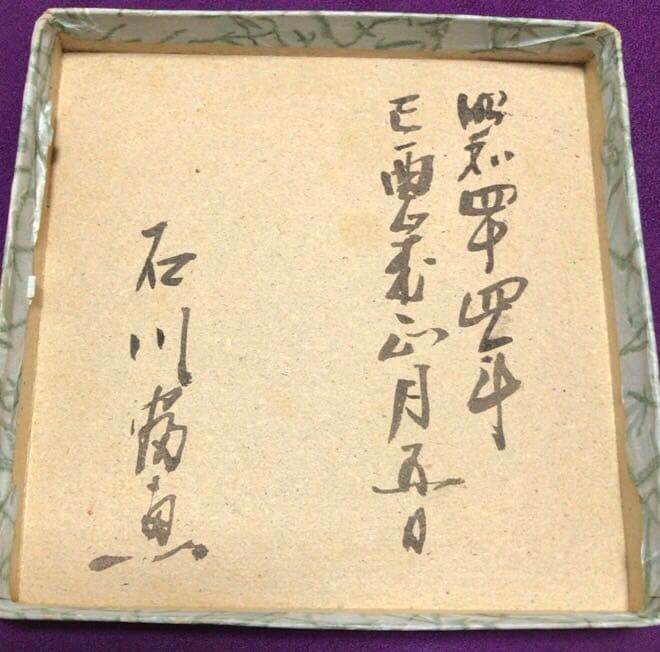 昭和四十四年
己酉歳正月五日
石川富